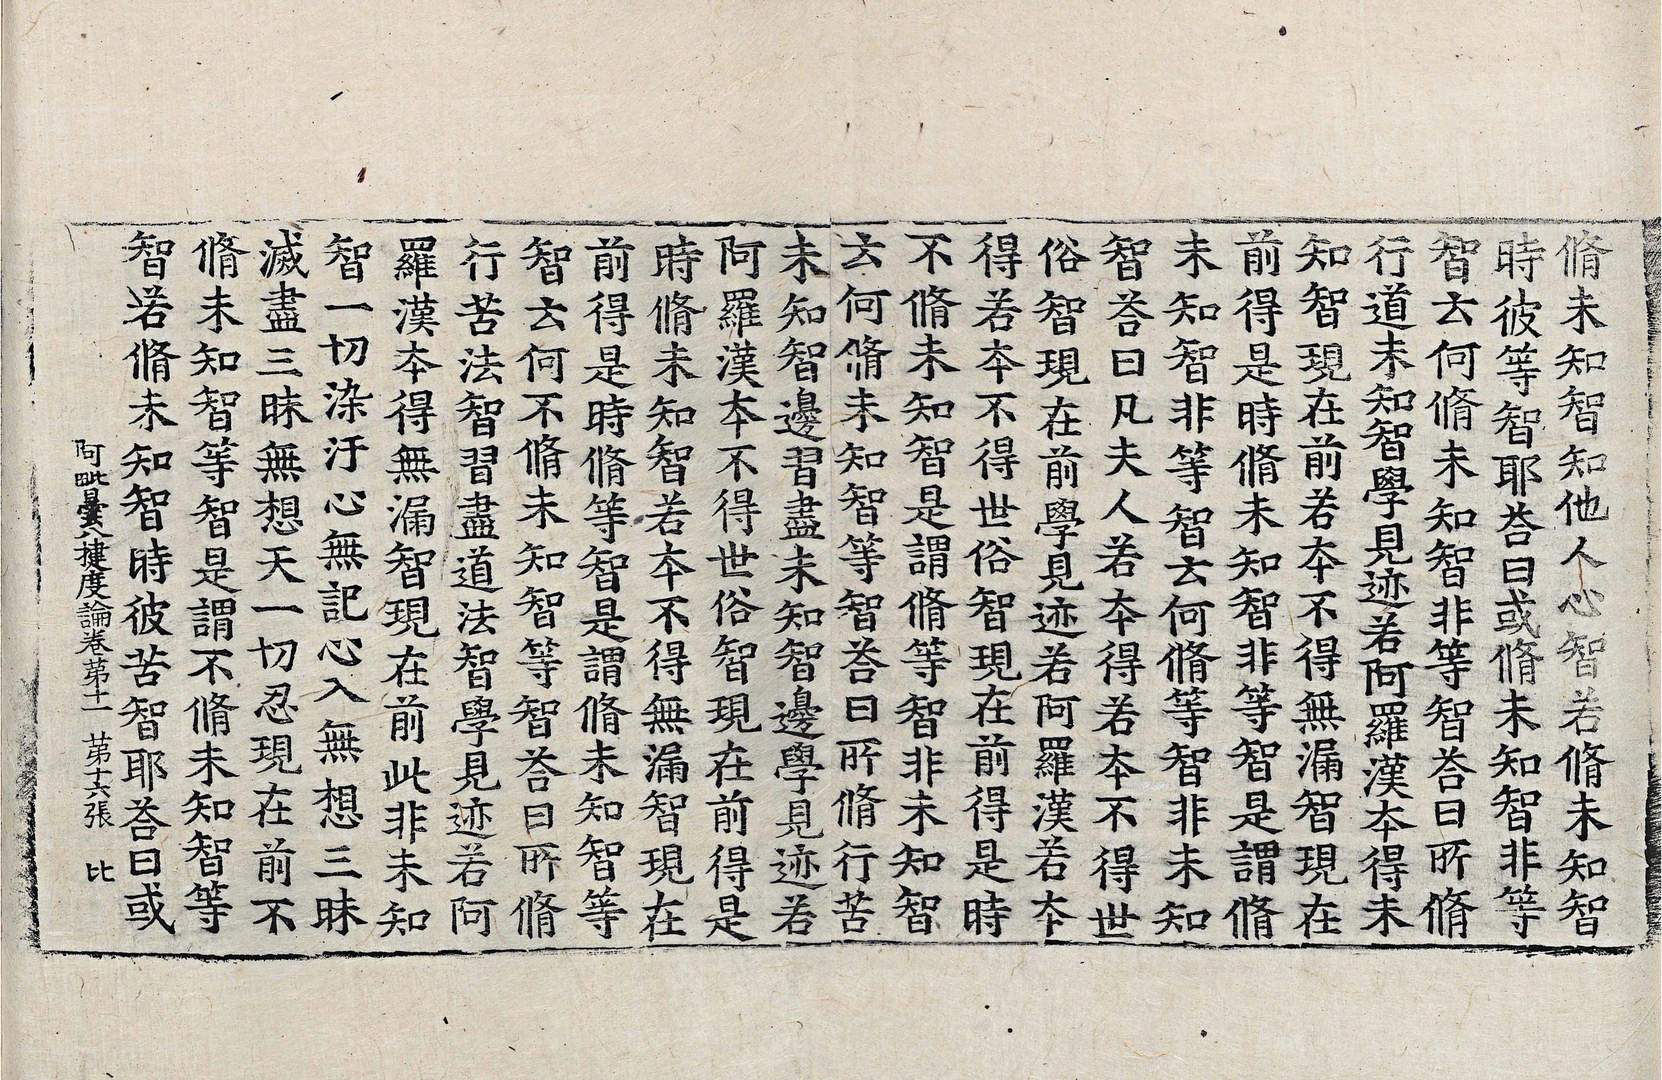 脩未知智知他人心智若脩未知智
時彼等智耶荅曰或脩未知智非等
智云何脩未知智非等智荅曰所脩
行道未知智學見迹若阿羅漢本得未
知智現在前若本不得無漏智現在
前得是時脩未知智非等智是謂脩
未知智非等智云何脩等智非未知
智荅曰凡夫人若本得若本不得世
俗智現在前學見迹若阿羅漢若本
得若本不得世俗智現在前得是時
不脩未知智是謂脩等智非未知智
云何脩未知智等智荅曰所脩行苦
未知智邊習盡未知智邊學見迹若
阿羅漢本不得世俗智現在前得是
時脩未知智若本不得無漏智現在
前得是時脩等智是謂脩未知智等
智云何不脩未知智等智荅曰所脩
行苦法智習盡道法智學見迹若阿
羅漢本得無漏智現在前此非未知
智一切染汙心無記心入無想三昧
滅盡三昧無想天一切忍現在前不
脩未知智等智是謂不脩未知智等
智若脩未知智時彼苦智耶荅曰或
阿毗曇八揵度論卷第十一　第十六張　比